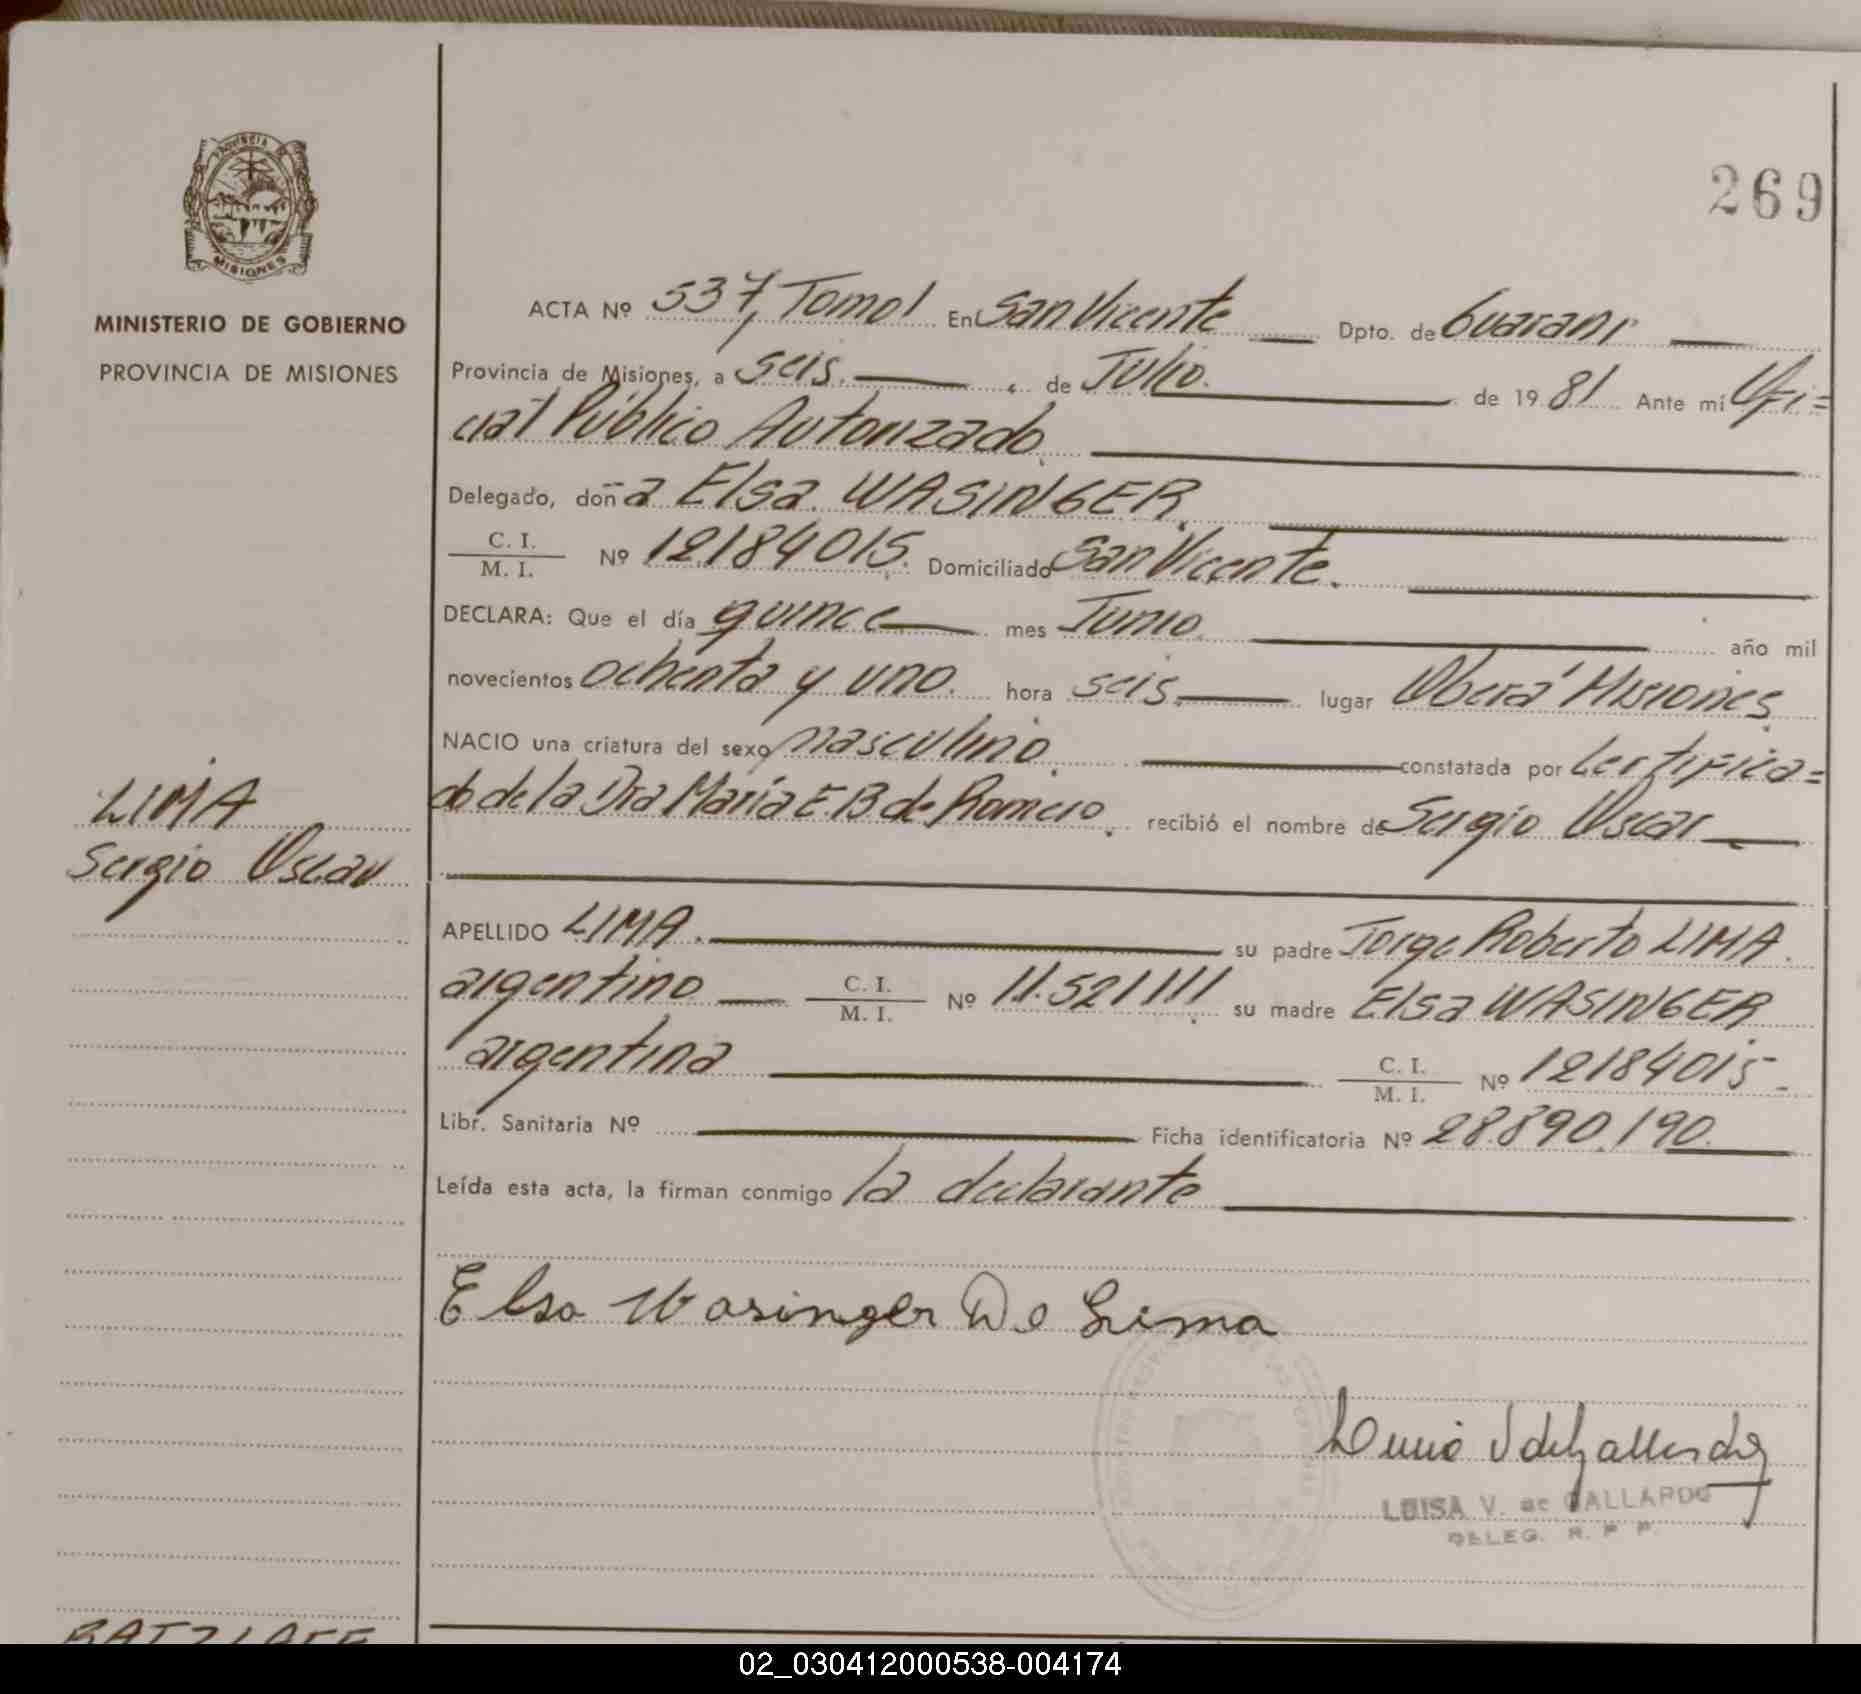 269
PROVINCIA DE
MISIONES
MINISTERIO DE GOBIERNO
PROVINCIA DE MISIONES
ACTA Nº 537, Tomo I En San Vicente Dpto. de Guaraní
Provincia de Misiones, a seis. de Julio. de 1981 Ante mí Ofi=
cial Público Autorizado.
Delegado, doña Elsa WASINGER.
C. I.
M. I. Nº 12184015. Domiciliado San Vicente.
DECLARA: Que el día quince mes Junio. año mil
novecientos ochenta y uno. hora seis. lugar Oberá Misiones
NACIO una criatura del sexo masculino. constatada por Certifica=
do de la Dra María E. B de Romero. recibió el nombre de Sergio Oscar
LIMA
Sergio Oscar
APELLIDO LIMA. su padre Jorge Roberto LIMA.
argentino C. I.
M. I. Nº 11.521111 su madre Elsa WASINGER
argentina C. I.
M. I. Nº 12184015-
Libr. Sanitaria Nº Ficha identificatoria Nº 28.890.190.
Leída esta acta, la firman conmigo la declarante
Elsa Wasinger De Lima
LUISA V. de GALLARDO
DELEG. R. P. P.
02_030412000538-004174